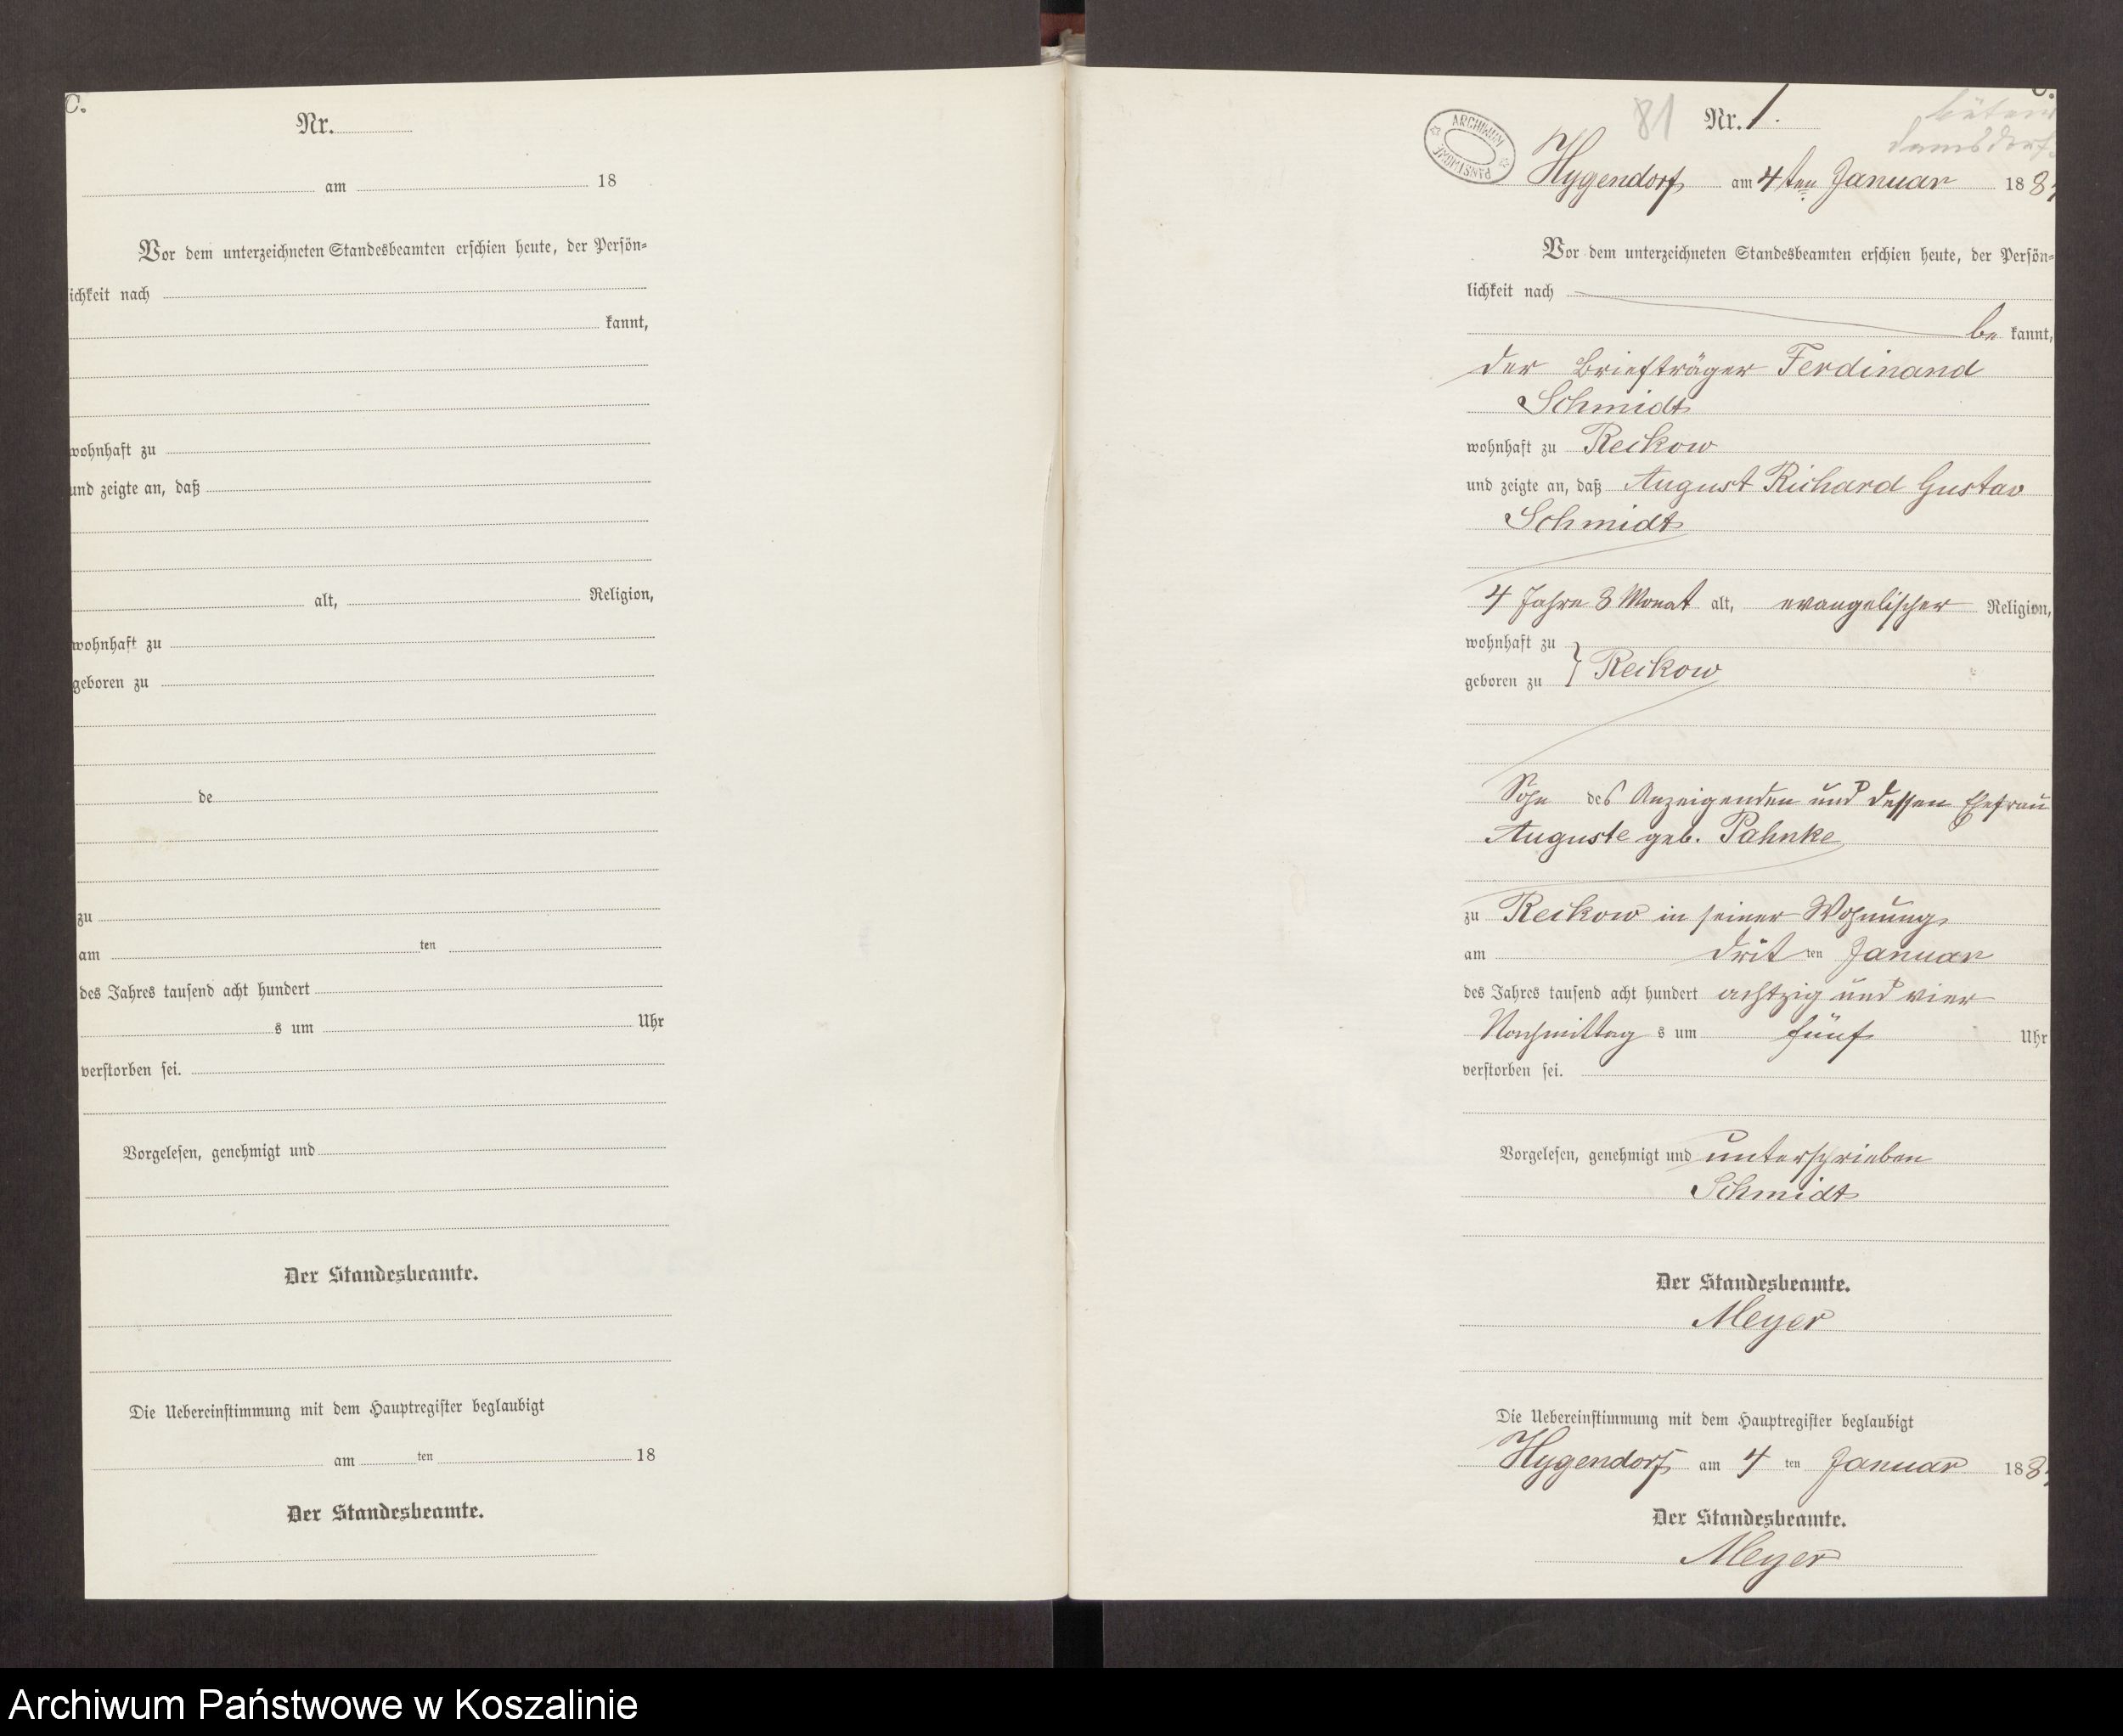 C.
Nr.
am 18
Vor dem unterzeichneten Standesbeamten erschien heute, der Persön=
lichkeit nach
kannt,
wohnhaft zu
und zeigte an, daß
alt, Religion,
wohnhaft zu
geboren zu
de
zu
am ten
des Jahres tausend acht hundert
s um Uhr
verstorben sei.
Vorgelesen, genehmigt und
Der Standesbeamte.
Die Uebereinstimmung mit dem Hauptregister beglaubigt
am ten 18
Der Standesbeamte.
81 Nr. 1.
ARCHIWUM PAŃSTWOWE
Damsdorf
Hygendorf am 4ten Januar 188
Vor dem unterzeichneten Standesbeamten erschien heute, der Persön=
lichkeit nach
be kannt,
der Briefträger Ferdinand
Schmidt
wohnhaft zu Reckow
und zeigte an, daß August Richard Gustav
Schmidt
4 Jahre 8 Monat alt, evangelischer Religion,
wohnhaft zu
geboren zu } Reckow
Sohn des Anzeigenden und dessen Ehefrau
Auguste geb. Pahnke
zu Reckow in seiner Wohnung
am drit ten Januar
des Jahres tausend acht hundert achtzig und vier
Nachmittag s um fünf Uhr
verstorben sei.
Vorgelesen, genehmigt und unterschrieben
Schmidt
Der Standesbeamte.
Meyer
Die Uebereinstimmung mit dem Hauptregister beglaubigt
Hygendorf am 4 ten Januar 188
Der Standesbeamte.
Meyer
Archiwum Państwowe w Koszalinie